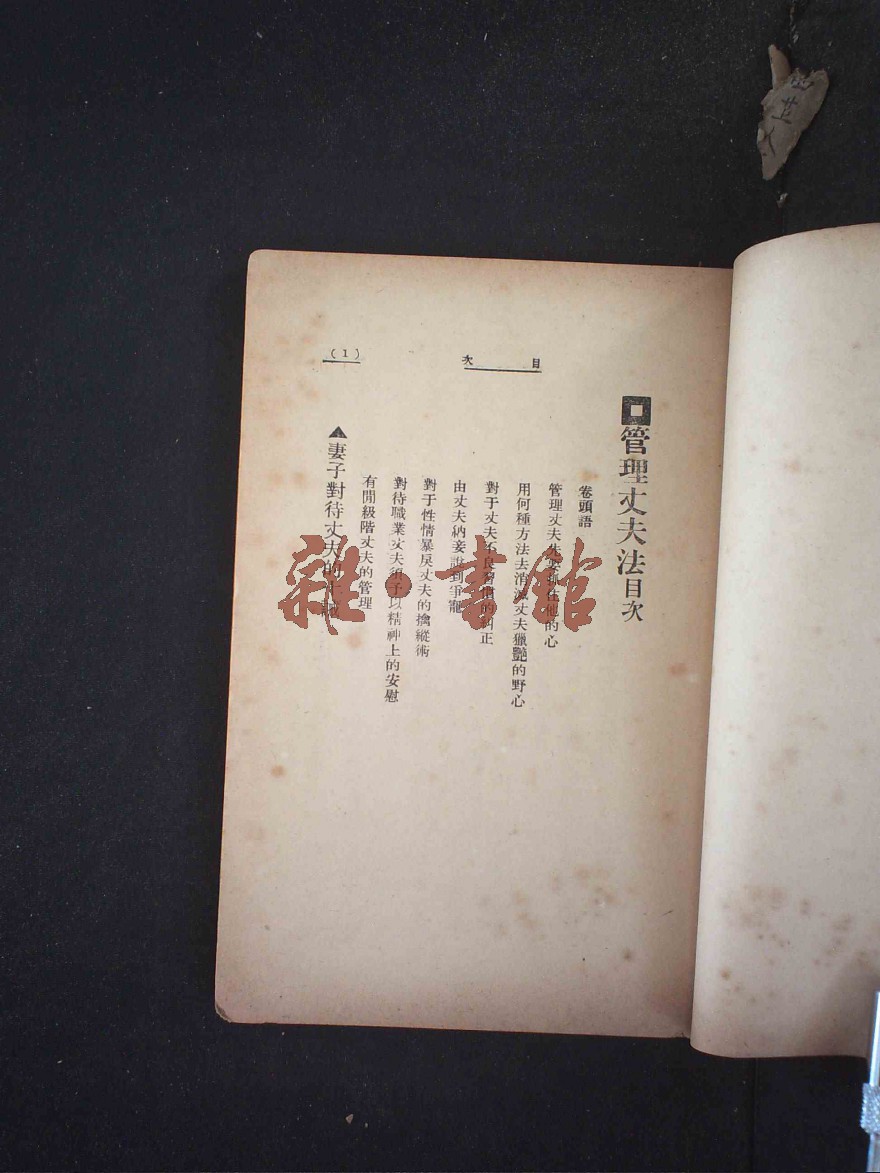 管理丈夫法目次
卷頭語
管理丈夫先要抓住他的心
用何種方法去消滅丈夫獵艷的野心
對于丈夫不良習慣的糾正
由丈夫納妾說到爭寵
對于性情暴戾丈夫的擒縱術
對待職業丈夫須予以精神上的安慰
有閒級階丈夫的管理
▲妻子對待丈夫的十誡
目次
(1)
雜·書館